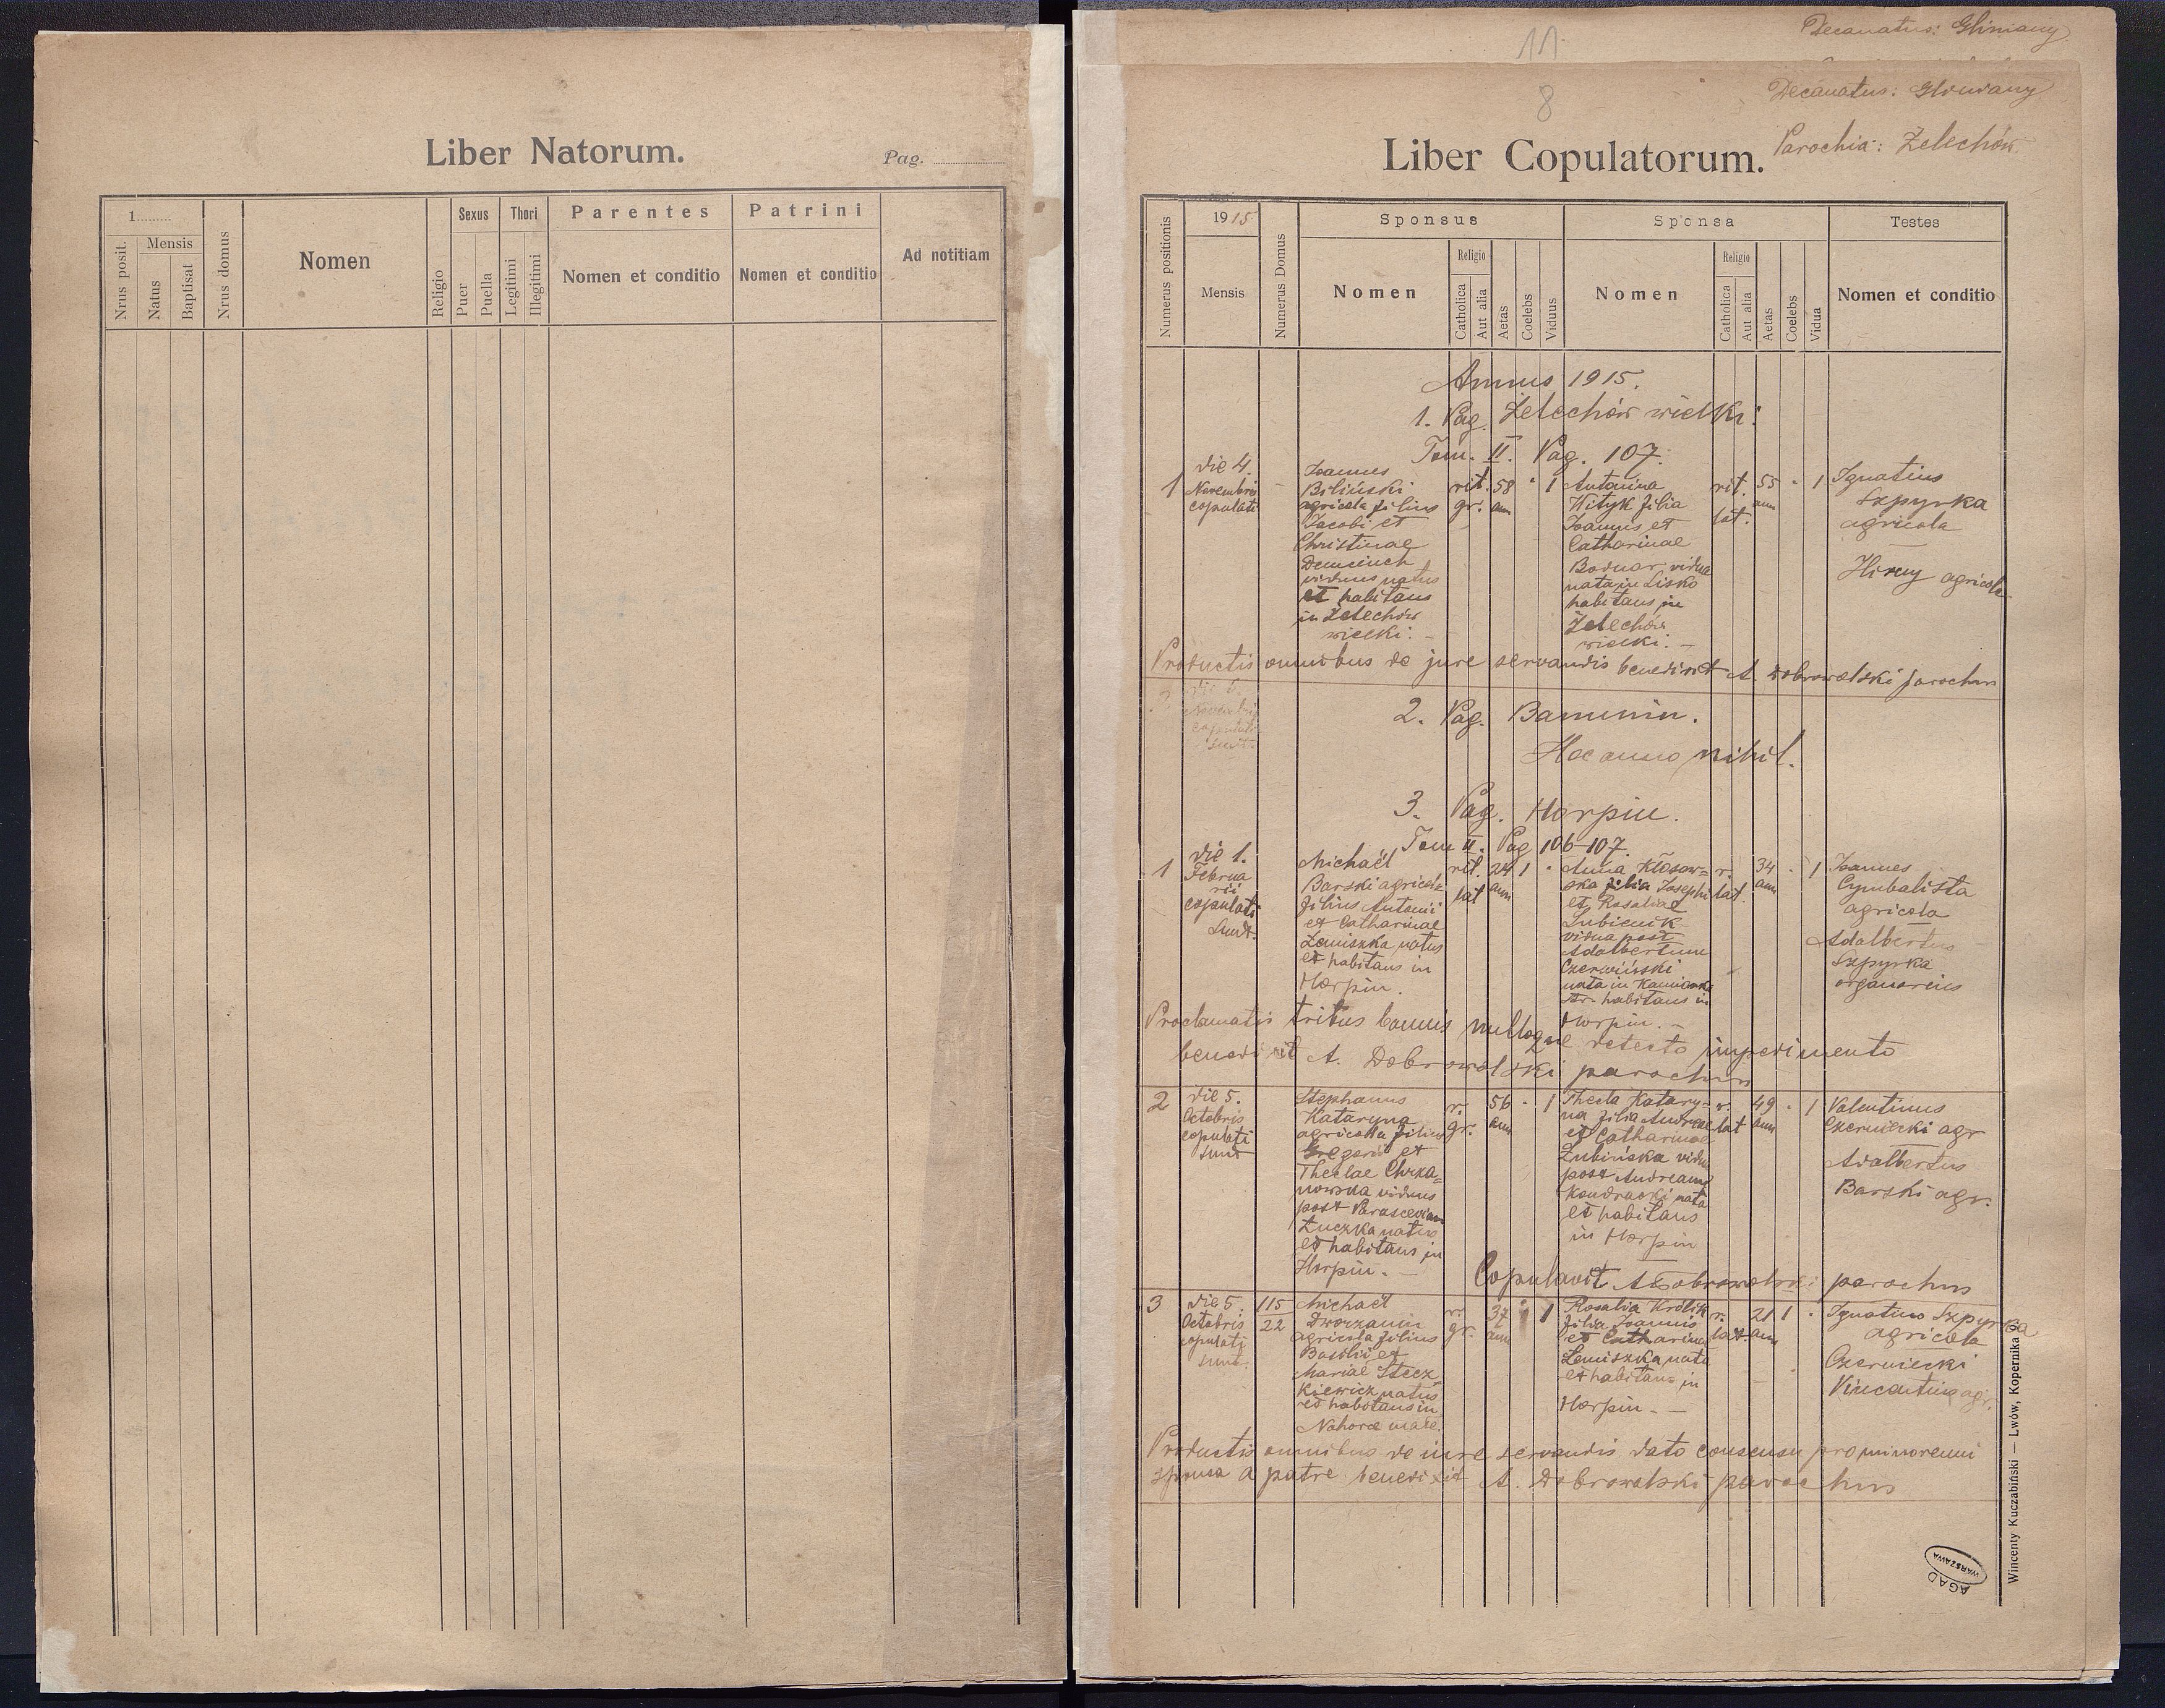 Liber Natorum.
Pag.
1
Mensis
Nrus posit.
Natus
Baptisat
Nrus domus
Nomen
Religio
Sexus
Puer
Puella
Thori
Legitimi
Illegitimi
Parentes
Nomen et conditio
Patrini
Nomen et conditio
Ad notitiam
11
Decanatus: Gliniany
8
Decanatus: Gliniany
Parochia: Żelechów
Liber Copulatorum.
Numerus positionis
1915
Mensis
Numerus Domus
Sponsus
Nomen
Religio
Catholica
Aut alia
Aetas
Coelebs
Viduus
Sponsa
Nomen
Religio
Catholica
Aut alia
Aetas
Coelebs
Vidua
Testes
Nomen et conditio
Annus 1915.
1. Pag. Żelechów wielki:
Tom. II. Pag. 107.
1
die 4.
Novembris
copulati
Joannes
Biliński
agricola filius
Jacobi et
Christinae
viduus natus
et habitans
in Żelechów
wielki. -
rit.
gr.
58
ann
1
Antonina
Hityk filia
Joannis et
Catharinae
Bodnar vidua
nata in Lisko
habitans in
Żelechów
wielki. -
rit.
lat.
55
ann
1
Ignatius
Szpyrka
agricola
Hirny agricola
Productis omnibus de jure servandis benedixit A. Dobrowolski parochus
die
Novembris
copulati
sunt
2. Pag. Banunin.
Hoc anno nihil.
3. Pag. Horpin.
Tom II. Pag 106-107.
1
die 1.
Februa
rii
copulati
sunt.
Michaël
Barski agricola
filius Antonii
et Catharinae
Lemiszka natus
et habitans in
Horpin.
rit.
lat
24
ann
1
Anna Kłosow=
ska filia Josephi
et Rosaliae
Lubienik
vidua post
Adalbertum
Czerwiński
nata in Kamionka
str. habitans in
Horpin. -
r.
lat.
34
ann
1
Joannes
Cymbalista
agricola
Adalbertus
Szpyrka
organarius
Proclamatis tribus bannis nulloque detecto impedimento
benedixit A. Dobrowolski parochus
2
die 5.
Octobris
copulati
sunt
Stephanus
Kataryna
agricola filius
Gregorii et
Theclae Chrza=
nowska viduus
post Parasceviam
Łuczka natus
et habitans in
Horpin. -
r.
gr.
56
ann
1
Thecla Katary=
na filia Andreae
et Catharinae
Zubińska vidua
post Andream
Kondracki nata
et habitans
in Horpin
r.
lat
49
ann
1
Valentinus
Czerniecki agr
Adalbertus
Barski agr.
Copulavit A. Dobrowolski parochus
3
die 5.
Octobris
copulati
sunt.
115
22
Michaël
Dworzanin
agricola filius
Basilii et
Mariae Stecz
kiewicz natus
et habitans in
Nahorce małe.
r.
gr.
37
ann
1
Rosalia Królik
filia Joannis
et Catharinae
Lemiszka nata
et habitans in
Horpin. -
r.
lat.
21
ann
1
Ignatius Szpyrka
agricola
Czerniecki
Vincentius agr.
Productis omnibus de iure servandis dato consensu pro minorenni
sponsa a patre benedixit A. Dobrowolski parochus
AGAD
WARSZAWA
Wincenty Kuczabiński — Lwów, Kopernika 9.